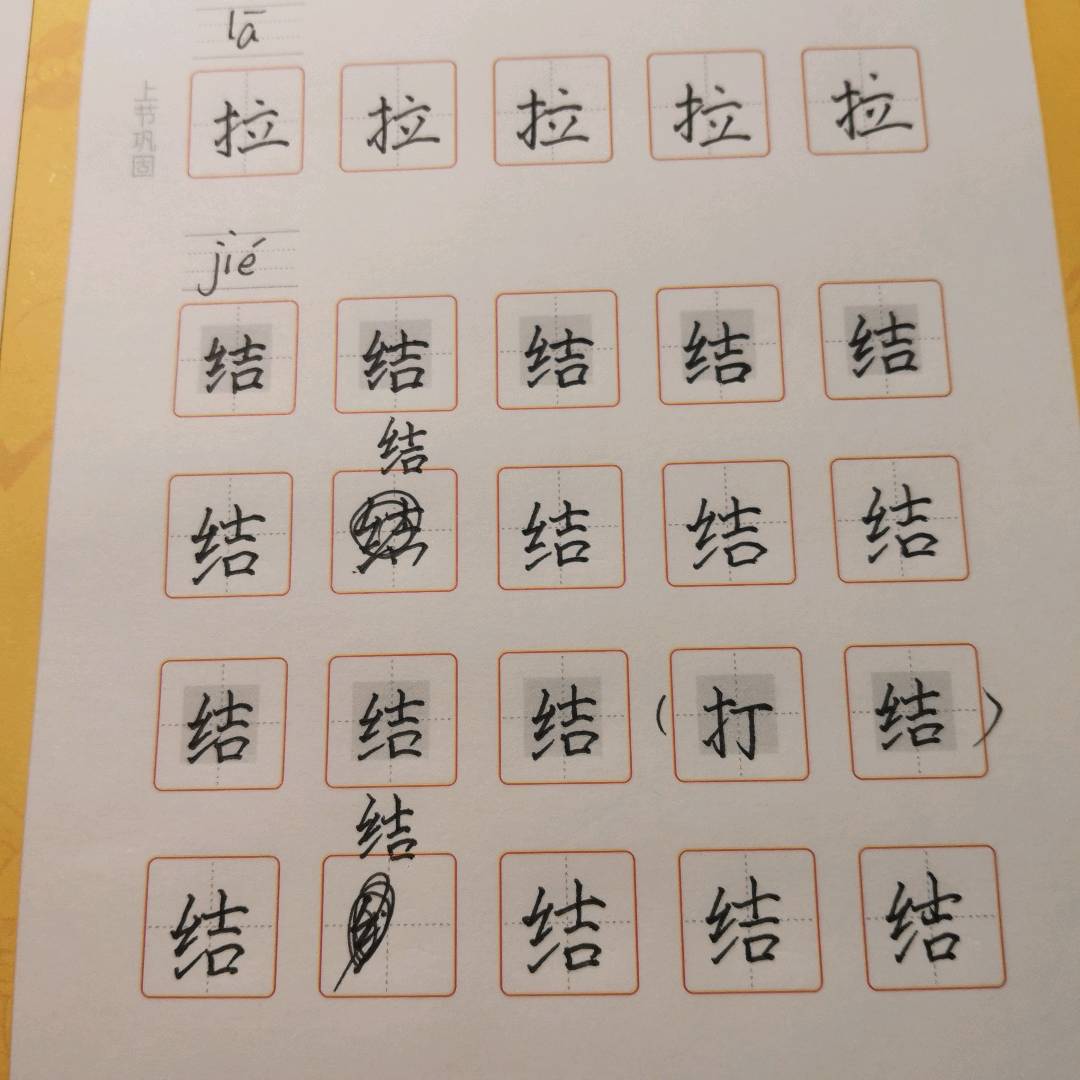 lā
上节巩固
拉 拉 拉 拉 拉
jié
结 结 结 结 结
结
结 结 结 结
结 结 结 (打 结)
结
结 结 结 结